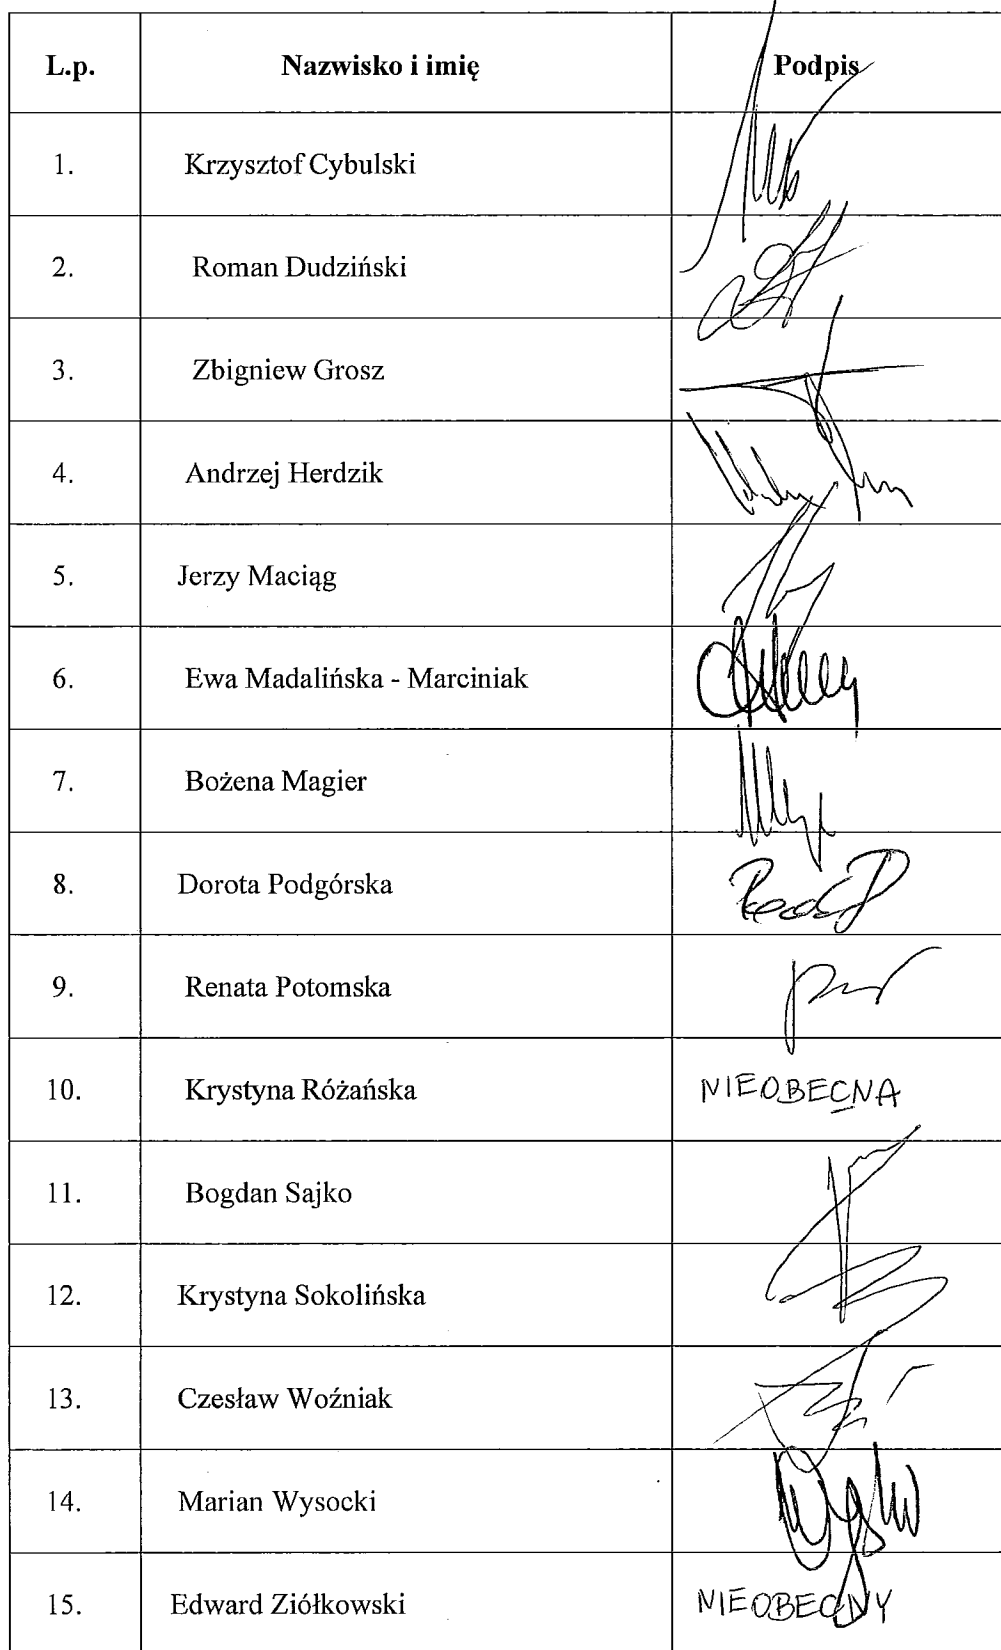 L.p. Nazwisko i imię Podpis
1. Krzysztof Cybulski
2. Roman Dudziński
3. Zbigniew Grosz
4. Andrzej Herdzik
5. Jerzy Maciąg
6. Ewa Madalińska - Marciniak
7. Bożena Magier
8. Dorota Podgórska
9. Renata Potomska
10. Krystyna Różańska NIEOBECNA
11. Bogdan Sajko
12. Krystyna Sokolińska
13. Czesław Woźniak
14. Marian Wysocki
15. Edward Ziółkowski NIEOBECNY